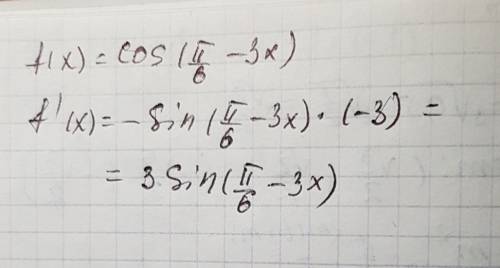 f(x) = cos(π/6 - 3x)
f'(x) = - sin(π/6 - 3x) · (-3) =
= 3 sin(π/6 - 3x)